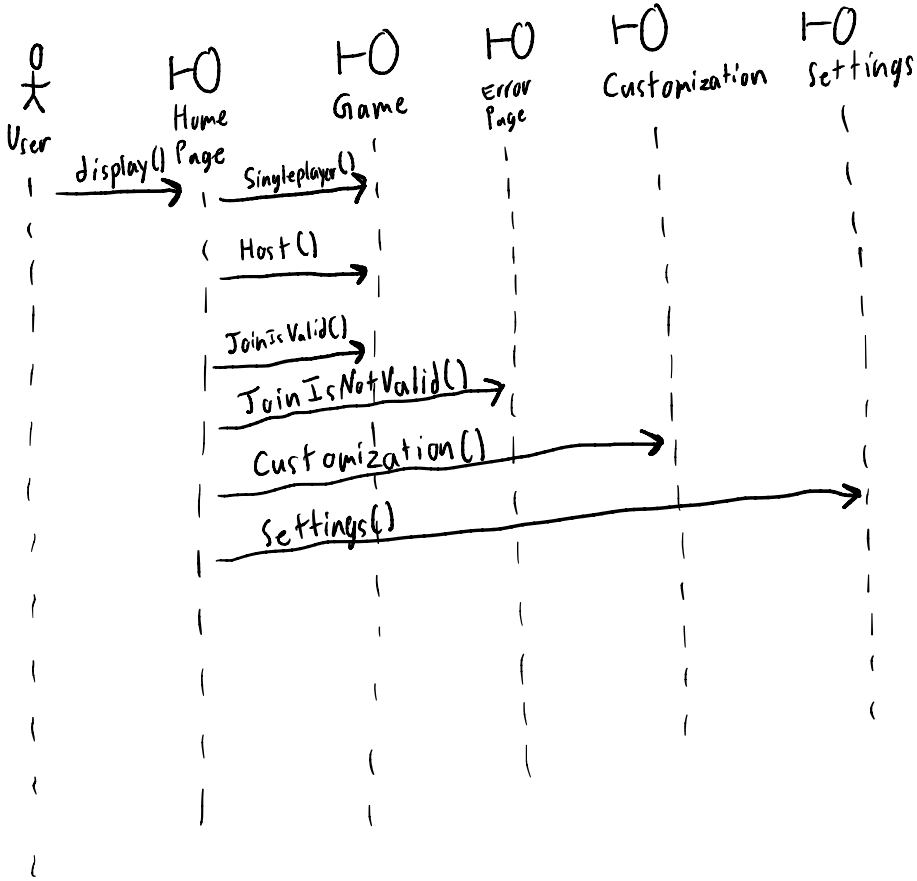 User
Home
Page
Game
Error
Page
Customization
Settings
display()
Singleplayer()
Host()
JoinIsValid()
JoinIsNotValid()
Customization()
Settings()